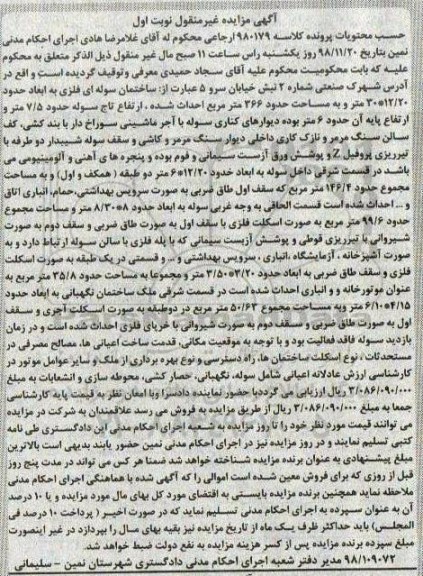 آگهی مزایده غیرمنقول نوبت اول
حسب محتویات پرونده کلاسه ۹۸۰۱۷۹ ارجاعی محکوم له آقای غلامرضا هادی اجرای احکام مدنی
نمین بتاریخ ۹۸/۱۱/۲۰ روز یکشنبه راس ساعت ۱۱ صبح مال غیر منقول ذیل الذکر متعلق به محکوم
علیه که بابت محکومیت محکوم علیه آقای سجاد حمیدی معرفی وتوقیف گردیده است و واقع در
آدرس شهرک صنعتی شماره ۲ نبش خیابان سرو ۵ عبارت از: ساختمان سوله ای فلزی به ابعاد حدود
۱۲/۲۰*۳۰ متر و به مساحت حدود ۳۶۶ متر مربع احداث شده . ارتفاع تاج سوله حدود ۷/۵ متر و
ارتفاع پایه آن حدود ۶ متر بوده دیوارهای کناری سوله با آجر ماشینی سوراخ دار با بند کشی، کف
سالن سنگ مرمر و نازک کاری داخلی دیوار سنگ مرمر و کاشی و سقف سوله شیبدار دو طرفه با
تیرریزی پروفیل Z و پوشش ورق آزبست سیمانی و فوم بوده و پنجره ها ی آهنی و آلومینیومی می
باشد در قسمت شرقی داخل سوله به ابعاد حدود ۱۲/۲۰*۶ متر دو طبقه ( همکف و اول) و به مساحت
مجموع حدود ۱۴۶/۴ متر مربع که سقف اول طاق ضربی به صورت سرویس بهداشتی،حمام، انباری اتاق
و ... احداث شده است قسمت الحاقی به وجه غربی سوله به ابعاد حدود ۸*۸/۳۰ متر و مساحت مجموع
حدود ۹۹/۶ متر مربع به صورت اسکلت فلزی با سقف اول به صورت طاق ضربی و سقف دوم به صورت
شیروانی با تیرریزی قوطی و پوشش آزبست سیمانی که با پله فلزی با سالن سوله ارتباط دارد و به
صورت آشپزخانه ، آزمایشگاه ،انباری ، سرویس بهداشتی و ... و قسمتی در یک طبقه به صورت اسکلت
فلزی و سقف طاق ضربی به ابعاد حدود ۳/۲۰*۳/۵۰ متر و مجموعا به مساحت حدود ۳۵/۸ متر مربع به
عنوان موتورخانه و و انباری احداث شده است در قسمت شرقی ملک ساختمان نگهبانی به ابعاد حدود
۴/۱۵*۶/۱۰ متر وبه مساحت مجموع ۵۰/۶۳ متر مربع در دوطبقه به صورت اسکلت آجری و سقف
اول به صورت طاق ضربی و سقف دوم به صورت شیروانی با خرپای فلزی احداث شده است و در زمان
بازدید سوله فاقد فعالیت بود و با توجه به موقعیت مکانی، قدمت ساخت اعیانی ها، مصالح مصرفی در
مستحدثات ، نوع اسکلت ساختمان ها، راه دسترسی و نوع بهره برداری از ملک و سایر عوامل موتور در
کارشناسی ارزش عادلانه اعیانی شامل سوله، نگهبانی، حصار کشی، محوطه سازی و انشعابات به مبلغ
۳/۰۸۶/۰۹۰/۰۰۰ ریال ارزیابی می گرددبا حضور نماینده دادسرا وبا امعان نظر به قیمت پایه کارشناسی
جمعا به مبلغ ۳/۰۸۶/۰۹۰/۰۰۰ ریال از طریق مزایده به فروش می رسد علاقمندان به شرکت در مزایده
می توانند قیمت مورد نظر خود را تا روز مزایده به شعبه اجرای احکام مدنی این دادگستری طی نامه
کتبی تسلیم نمایند و در روز مزایده نیز در اجرای احکام مدنی نمین حضور یابند بدیهی است بالاترین
مبلغ پیشنهادی به عنوان برنده مزایده شناخته خواهد شد ضمنا هر کس می تواند در مدت پنج روز
قبل از روزی که برای فروش معین شده است اموالی را که آگهی شده با هماهنگی اجرای احکام مدنی
ملاحظه نماید همچنین برنده مزایده بایستی به اقتضای مورد کل بهای مال مورد مزایده و یا ۱۰ درصد
آن به عنوان سپرده به اجرای احکام مدنی تسلیم نماید که در صورت اخیر ( پرداخت ۱۰ درصد فی
المجلس) باید حداکثر ظرف یک ماه از تاریخ مزایده نیز بقیه بهای مال را بپردازد در غیر اینصورت
مبلغ سپرده برنده مزایده پس از کسر هزینه مزایده به نفع دولت ضبط خواهد شد.
۹۸/۱۰۹۰۷۲ مدیر دفتر شعبه اجرای احکام مدنی دادگستری شهرستان نمین - سلیمانی